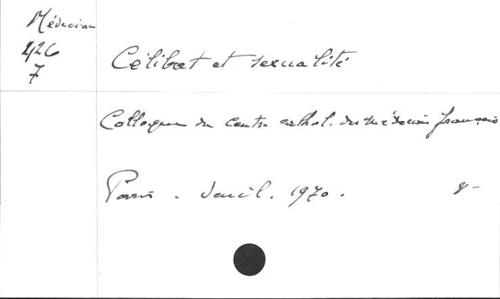 Médecine
226
7
Célibat et sexualité
Colloque du centre cathol. des médecins français
Paris. Seuil. 1970. 8-